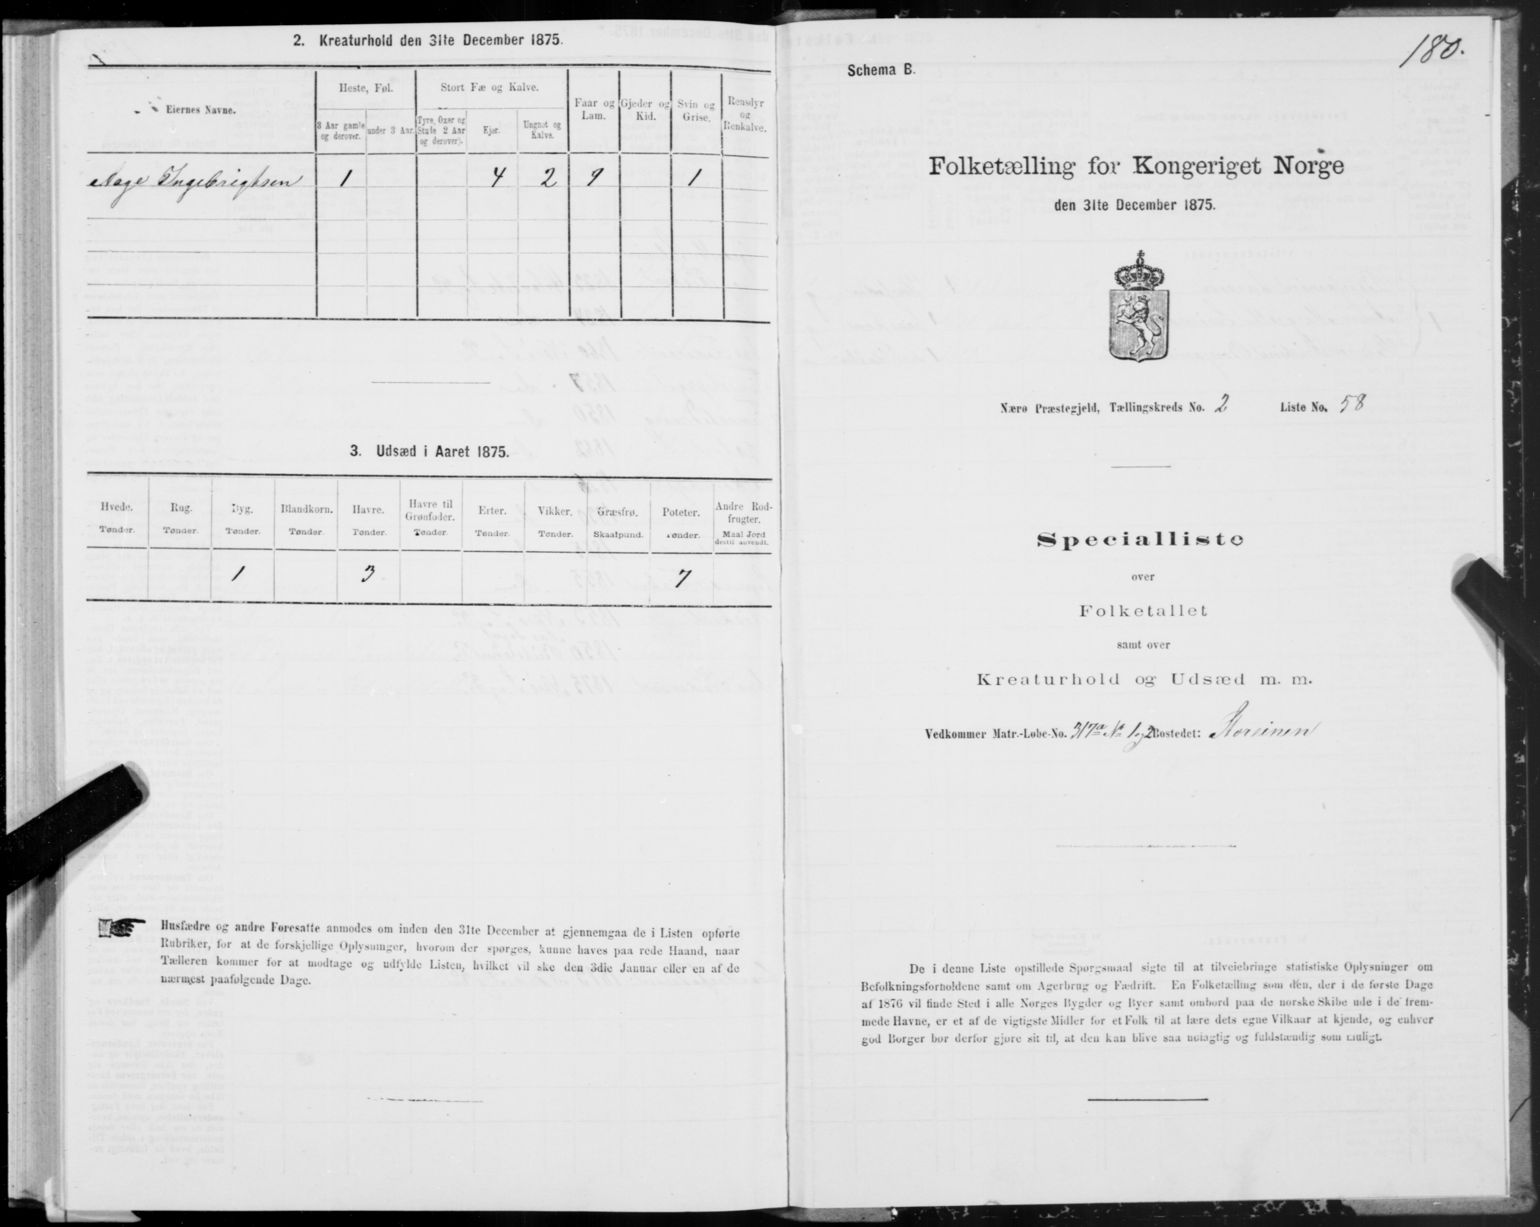 2. Kreaturhold den 31te December 1875.
Eiernes Navne.
Heste, Føl.
Stort Fæ og Kalve.
Faar og Lam.
Gjeder og Kid.
Svin og Grise.
Rensdyr og Renkalve.
3 Aar gamle og derover.
under 3 Aar.
Tyre, Oxer og Stude 2 Aar og derover.
Kjør.
Ungnøt og Kalve.
Aage Ingebrigtsen 1 4 2 9 1
3. Udsæd i Aaret 1875.
Hvede. Rug. Byg. Blandkorn. Havre. Havre til Grønfoder. Erter. Vikker. Græsfrø. Poteter. Andre Rodfrugter.
Tønder. Tønder. Tønder. Tønder. Tønder. Tønder. Tønder. Tønder. Skaalpund. Tønder. Maal Jord dertil anvendt.
1 3 7
Husfædre og andre Foresatte anmodes om inden den 31te December at gjennemgaa de i Listen opførte
Rubriker, for at de forskjellige Oplysninger, hvorom der spørges, kunne haves paa rede Haand, naar
Tælleren kommer for at modtage og udfylde Listen, hvilket vil ske den 3die Januar eller en af de
nærmest paafølgende Dage.
180.
Schema B.
Folketælling for Kongeriget Norge
den 31te December 1875.
Nærø Præstegjeld, Tællingskreds No. 2 Liste No. 58
Specialliste
over
Folketallet
samt over
Kreaturhold og Udsæd m. m.
Vedkommer Matr.-Løbe-No. 317a No 1 og 2 Bostedet:
De i denne Liste opstillede Spørgsmaal sigte til at tilveiebringe statistiske Oplysninger om
Befolkningsforholdene samt om Agerbrug og Fædrift. En Folketælling som den, der i de første Dage
af 1876 vil finde Sted i alle Norges Bygder og Byer samt ombord paa de norske Skibe ude i de frem-
mede Havne, er et af de vigtigste Midler for et Folk til at lære dets egne Vilkaar at kjende, og enhver
god Borger bør derfor gjøre sit til, at den kan blive saa nøiagtig og fuldstændig som muligt.